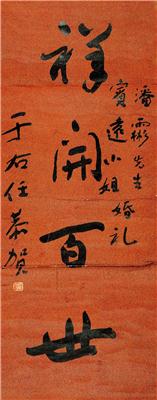 祥開百世
潘霨彬先生
寳遠小姐婚礼
于右任恭贺